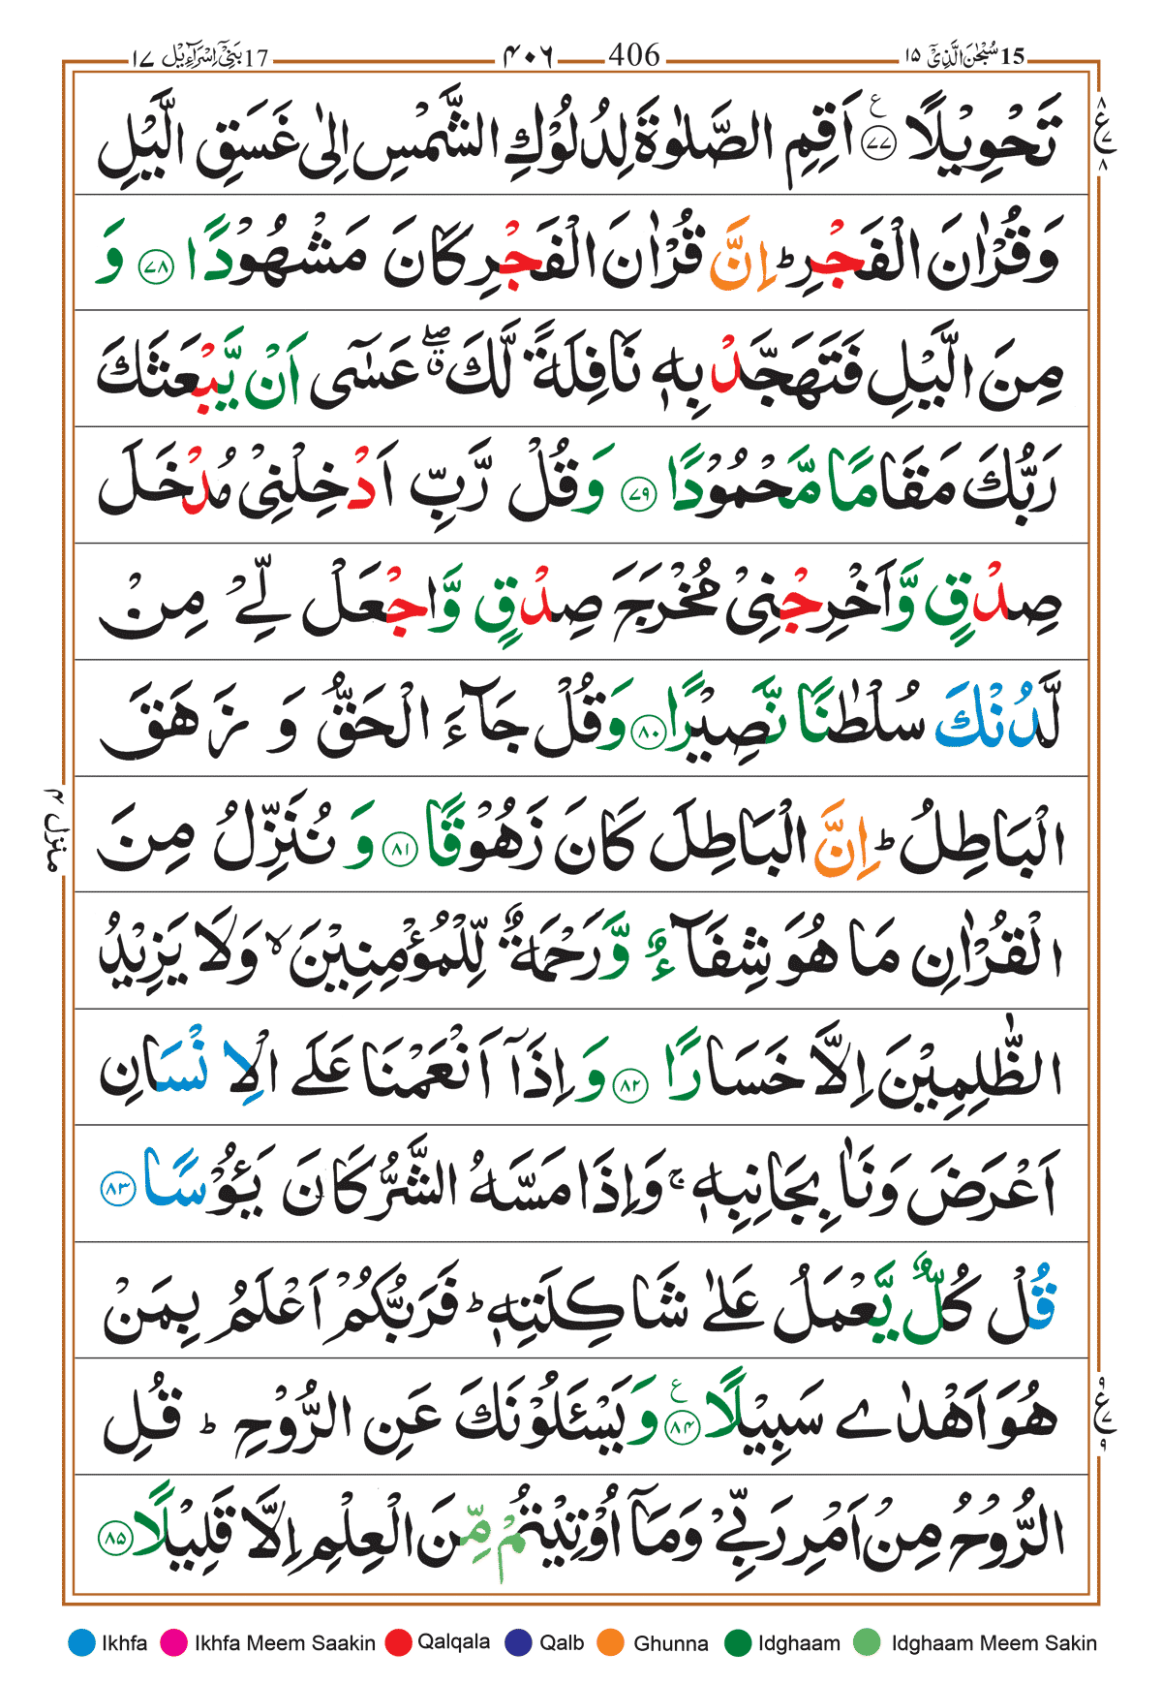 15 سُبْحٰنَ الَّذِیْۤ ۱۵ 406 ۴۰۶ 17 بَنِیْۤ اِسْرَآءِیْل ۱۷
تَحْوِیْلًا ﴿۷۷﴾ ع اَقِمِ الصَّلٰوةَ لِدُلُوْكِ الشَّمْسِ اِلٰی غَسَقِ الَّیْلِ
وَقُرْاٰنَ الْفَجْرِ ؕ اِنَّ قُرْاٰنَ الْفَجْرِ كَانَ مَشْهُوْدًا ﴿۷۸﴾ وَ
مِنَ الَّیْلِ فَتَهَجَّدْ بِهٖ نَافِلَةً لَّكَ ۖۗ عَسٰۤی اَنْ یَّبْعَثَكَ
رَبُّكَ مَقَامًا مَّحْمُوْدًا ﴿۷۹﴾ وَقُلْ رَّبِّ اَدْخِلْنِیْ مُدْخَلَ
صِدْقٍ وَّاَخْرِجْنِیْ مُخْرَجَ صِدْقٍ وَّاجْعَلْ لِّیْ مِنْ
لَّدُنْكَ سُلْطٰنًا نَّصِیْرًا ﴿۸۰﴾ وَقُلْ جَآءَ الْحَقُّ وَ زَهَقَ
الْبَاطِلُ ؕ اِنَّ الْبَاطِلَ كَانَ زَهُوْقًا ﴿۸۱﴾ وَ نُنَزِّلُ مِنَ
الْقُرْاٰنِ مَا هُوَ شِفَآءٌ وَّرَحْمَةٌ لِّلْمُؤْمِنِیْنَ ۙ وَلَا یَزِیْدُ
الظّٰلِمِیْنَ اِلَّا خَسَارًا ﴿۸۲﴾ وَ اِذَاۤ اَنْعَمْنَا عَلَی الْاِنْسَانِ
اَعْرَضَ وَنَاٰ بِجَانِبِهٖ ۚ وَاِذَا مَسَّهُ الشَّرُّ كَانَ یَـُٔوْسًا ﴿۸۳﴾
قُلْ كُلٌّ یَّعْمَلُ عَلٰی شَاكِلَتِهٖ ؕ فَرَبُّكُمْ اَعْلَمُ بِمَنْ
هُوَ اَهْدٰی سَبِیْلًا ﴿۸۴﴾ ع وَیَسْـَٔلُوْنَكَ عَنِ الرُّوْحِ ؕ قُلِ
الرُّوْحُ مِنْ اَمْرِ رَبِّیْ وَمَاۤ اُوْتِیْتُمْ مِّنَ الْعِلْمِ اِلَّا قَلِیْلًا ﴿۸۵﴾
۸ ع ۷ ۸
منزل ۴
۹ ع ۷ ۹
Ikhfa Ikhfa Meem Saakin Qalqala Qalb Ghunna Idghaam Idghaam Meem Sakin